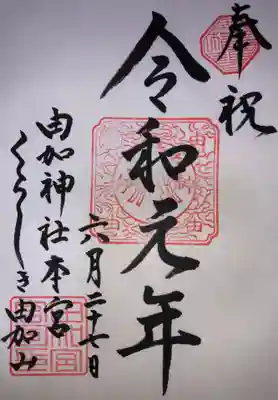 奉祝
令和元年
六月二十七日
由加神社本宮
くらしき由加山